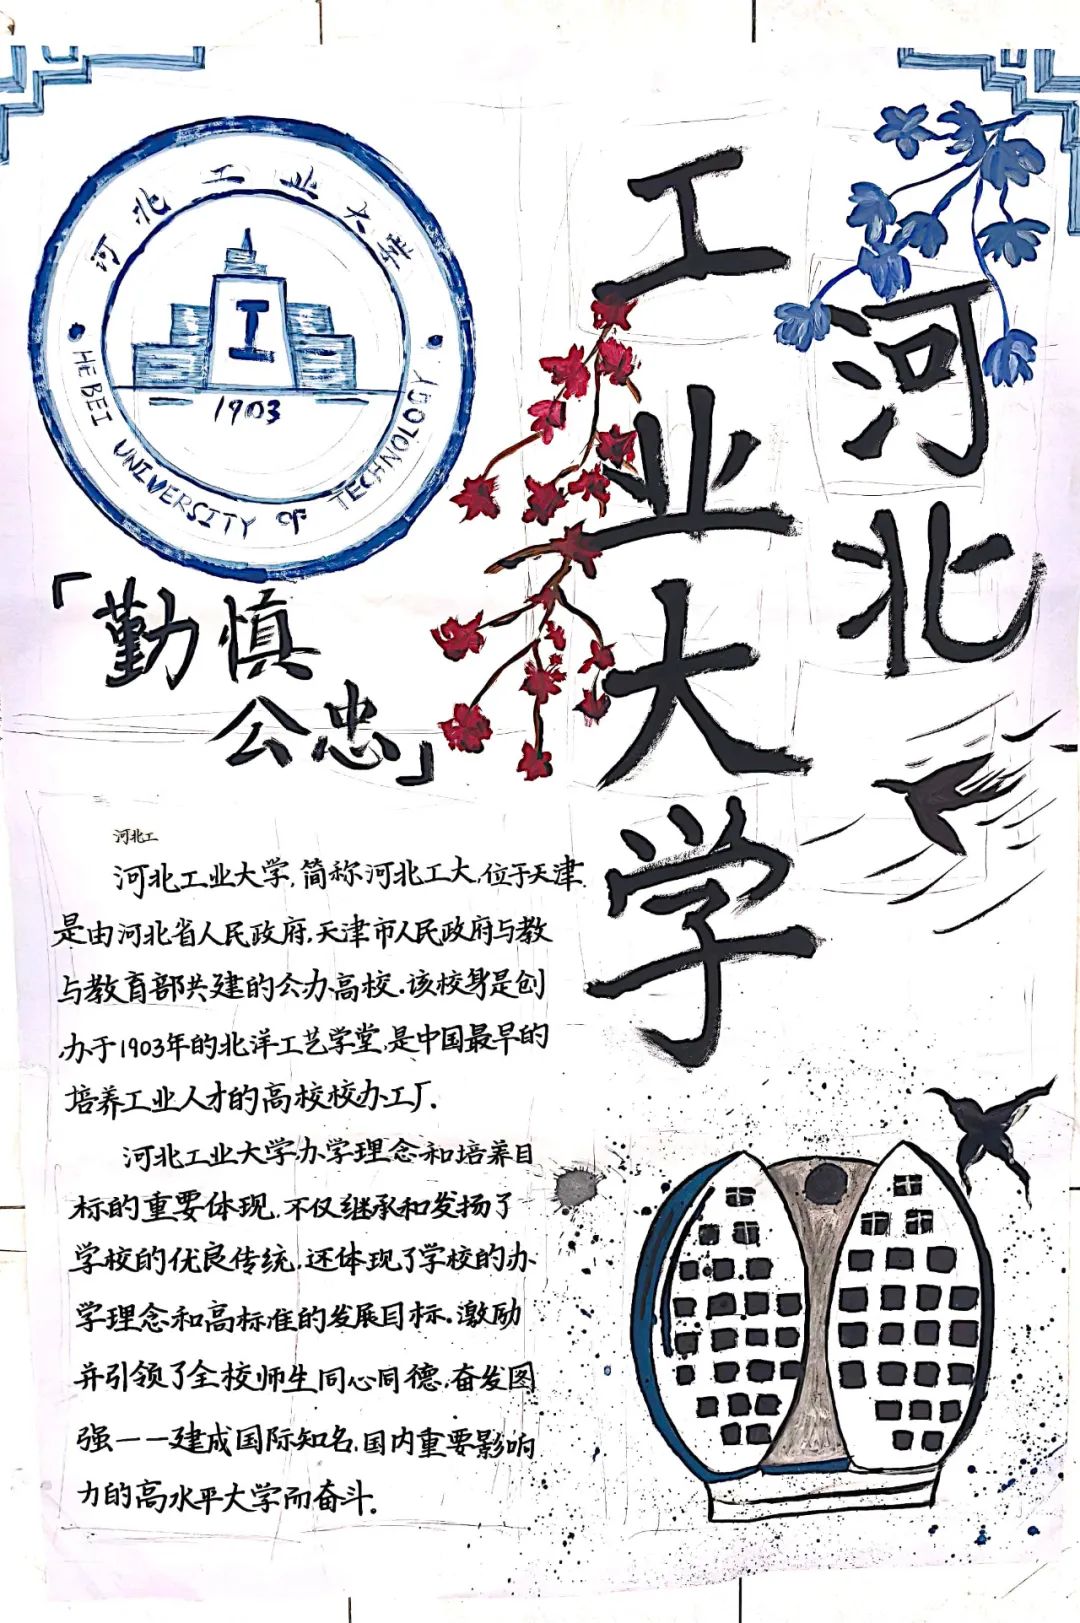 河北
工业大学
河北工业大学
1903
HEBEI UNIVERSITY OF TECHNOLOGY
「勤慎
公忠」
河北工
河北工业大学,简称河北工大,位于天津.
是由河北省人民政府,天津市人民政府与教
与教育部共建的公办高校.该校身是创
办于1903年的北洋工艺学堂,是中国最早的
培养工业人才的高校校办工厂.
河北工业大学办学理念和培养目
标的重要体现.不仅继承和发扬了
学校的优良传统.还体现了学校的办
学理念和高标准的发展目标.激励
并引领了全校师生同心同德,奋发图
强一一建成国际知名,国内重要影响
力的高水平大学而奋斗.